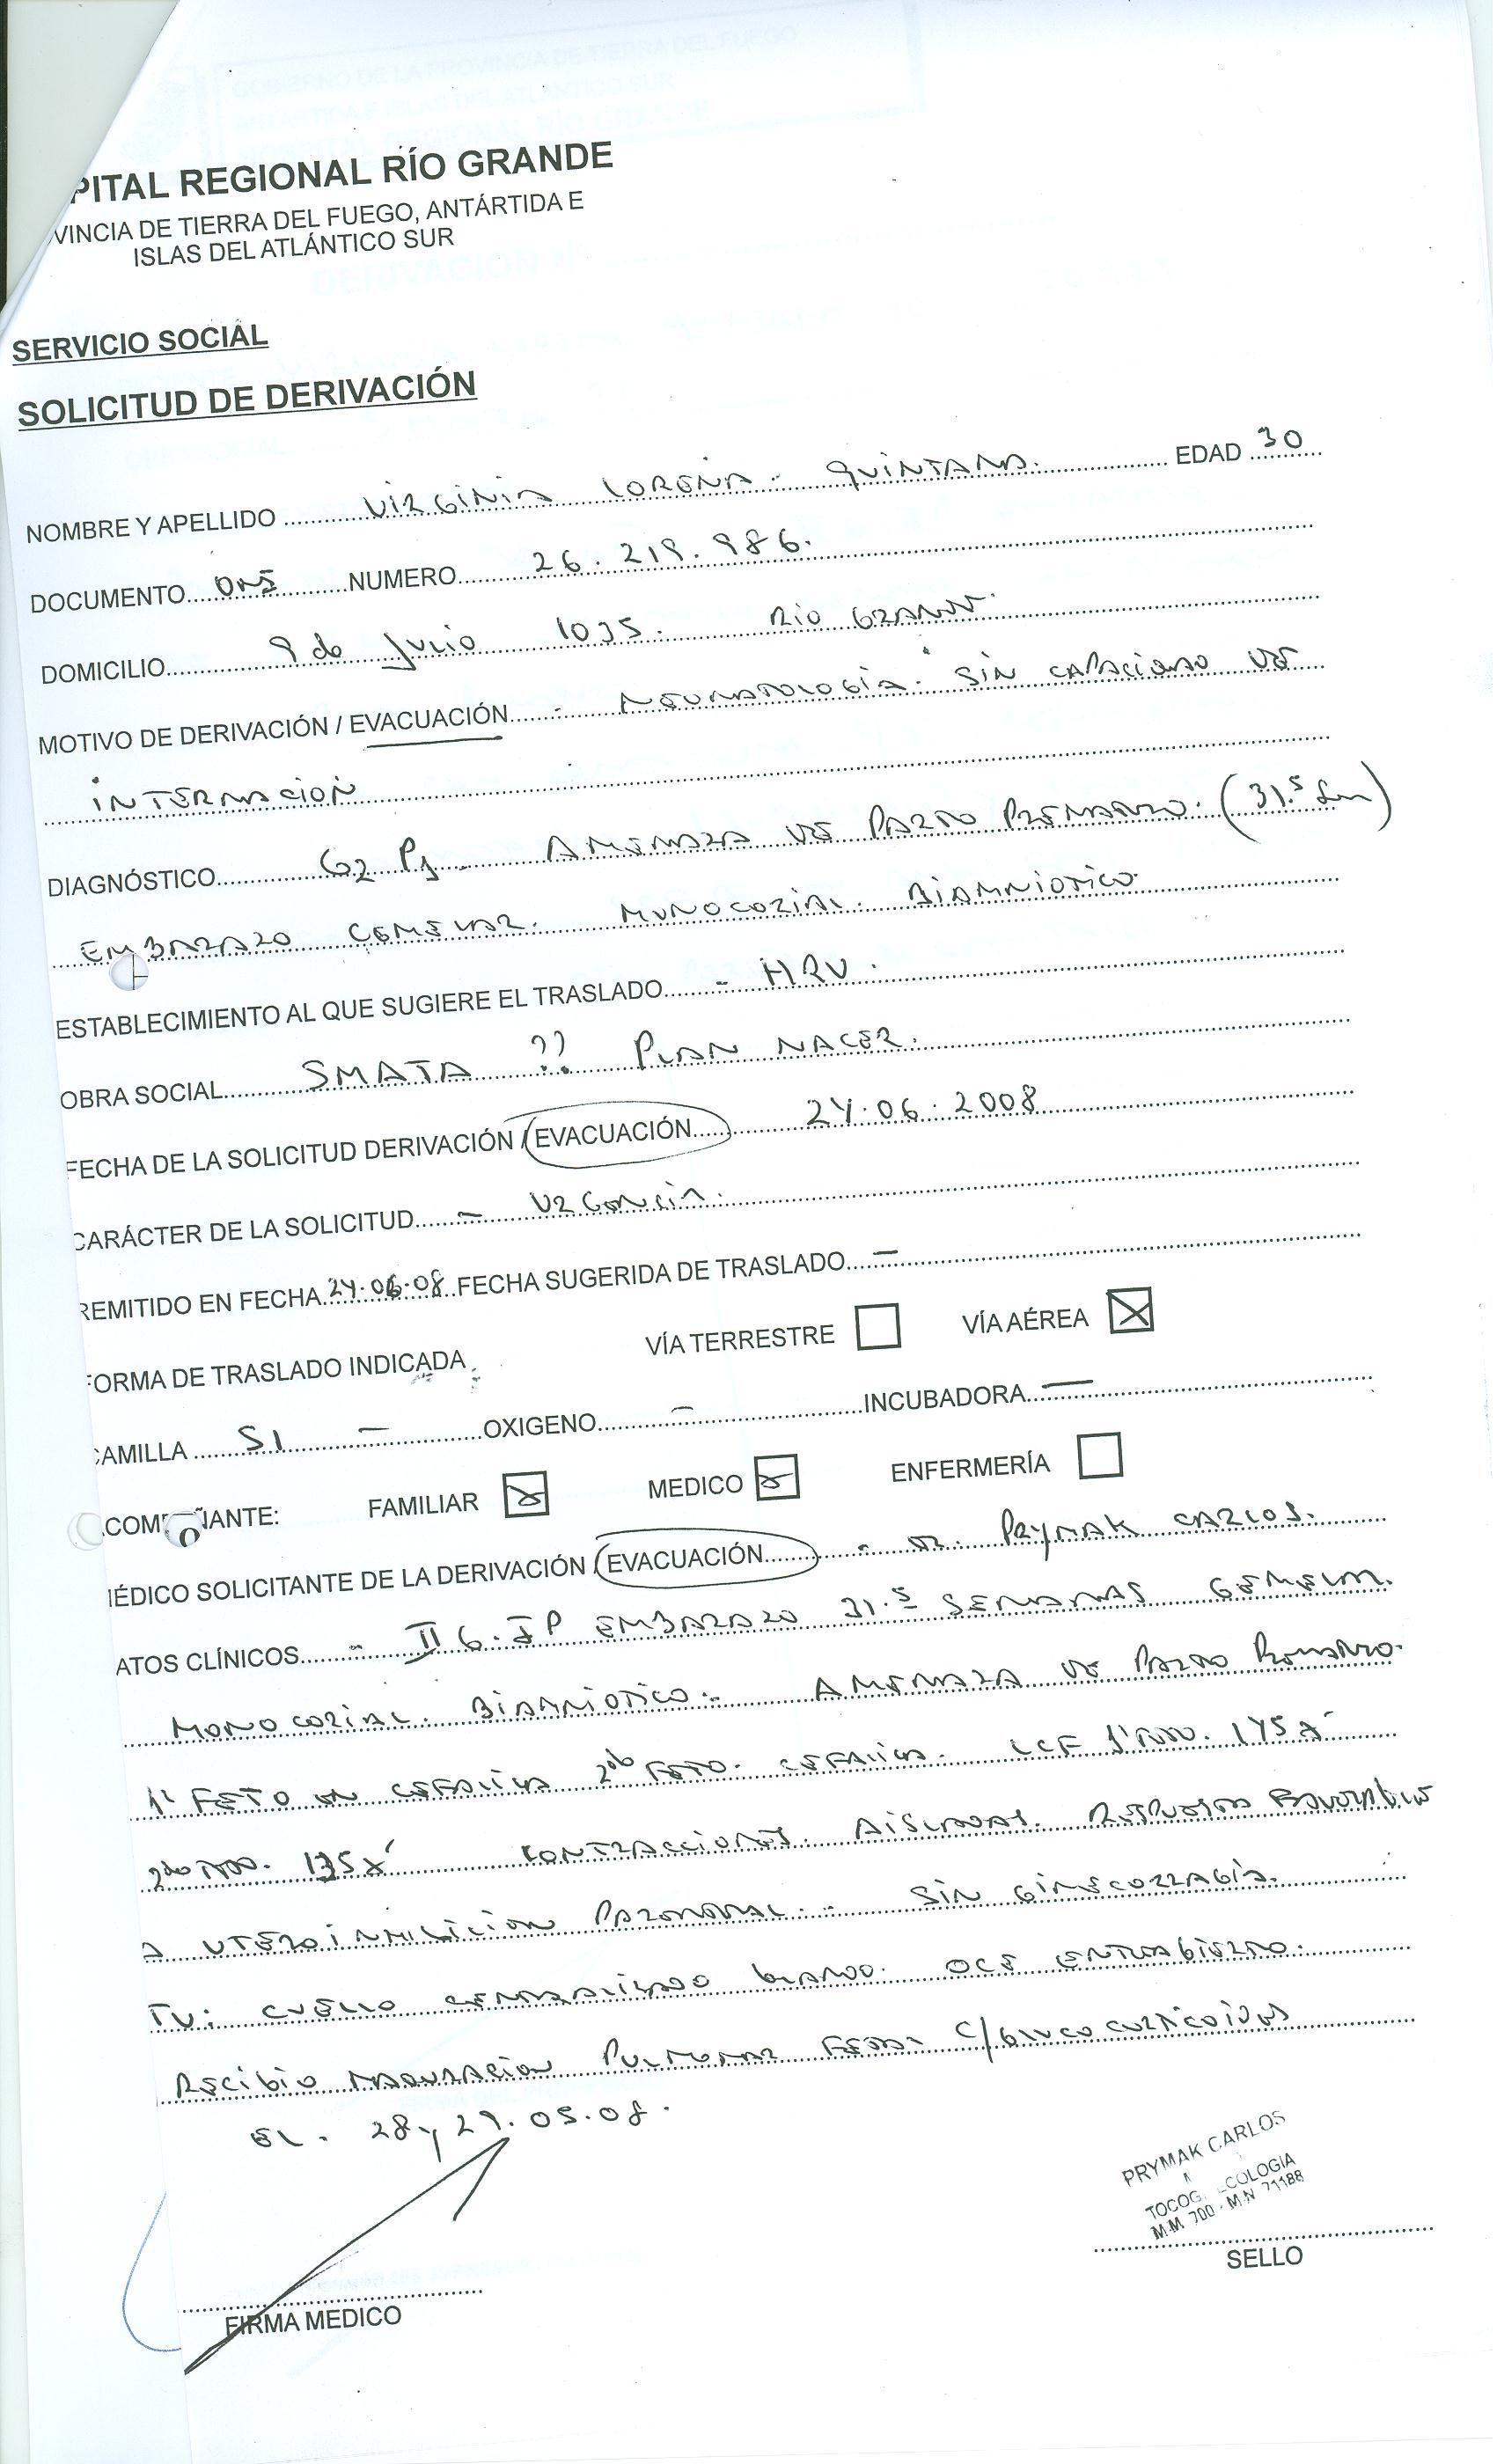 PITAL REGIONAL RÍO GRANDE
VINCIA DE TIERRA DEL FUEGO, ANTÁRTIDA E
ISLAS DEL ATLÁNTICO SUR
SERVICIO SOCIAL
SOLICITUD DE DERIVACIÓN
NOMBRE Y APELLIDO VIRGINIA LORENA - QUINTANA. EDAD 30
DOCUMENTO DNI NUMERO 26.219.986.
DOMICILIO 9 de Julio 1035. Río GRANDE.
MOTIVO DE DERIVACIÓN / EVACUACIÓN - NEONATOLOGÍA. SIN CAPACIDAD DE
INTERNACIÓN
DIAGNÓSTICO G2 P1 - AMENAZA DE PARTO PREMATURO. (31.5 Sem)
EMBARAZO GEMELAR. MONOCORIAL. BIAMNIOTICO
ESTABLECIMIENTO AL QUE SUGIERE EL TRASLADO - HRU.
OBRA SOCIAL SMATA ?? PLAN NACER.
FECHA DE LA SOLICITUD DERIVACIÓN / EVACUACIÓN 24.06.2008
CARÁCTER DE LA SOLICITUD - URGENCIA.
REMITIDO EN FECHA 24.06.08 FECHA SUGERIDA DE TRASLADO -
FORMA DE TRASLADO INDICADA VÍA TERRESTRE VÍA AÉREA X
CAMILLA SI - OXIGENO - INCUBADORA -
ACOMPAÑANTE: FAMILIAR MEDICO ENFERMERÍA
MÉDICO SOLICITANTE DE LA DERIVACIÓN / EVACUACIÓN - DR. PRYMAK CARLOS.
ATOS CLÍNICOS - II G. I P EMBARAZO 31.5 SEMANAS GEMELAR.
MONOCORIAL. BIAMNIOTICO - AMENAZA DE PARTO PREMATURO.
1º FETO EN CEFALICA 2do FETO. CEFALICA. LCF 1º 145 x'
2do 135 x' CONTRACCIONES. AISLADAS. RESPUESTA FAVORABLE
A UTEROINHIBICION PARENTERAL. - SIN GINECORRAGIA.
TV: CUELLO CENTRALIZADO BLANDO. OCE ENTREABIERTO.
RECIBIO MADURACION PULMONAR FETAL C/GLUCOCORTICOIDES
EL. 28 y 29.05.08.
PRYMAK CARLOS
TOCOG COLOGIA
M.M. 700 - M.N 71188
FIRMA MEDICO
SELLO